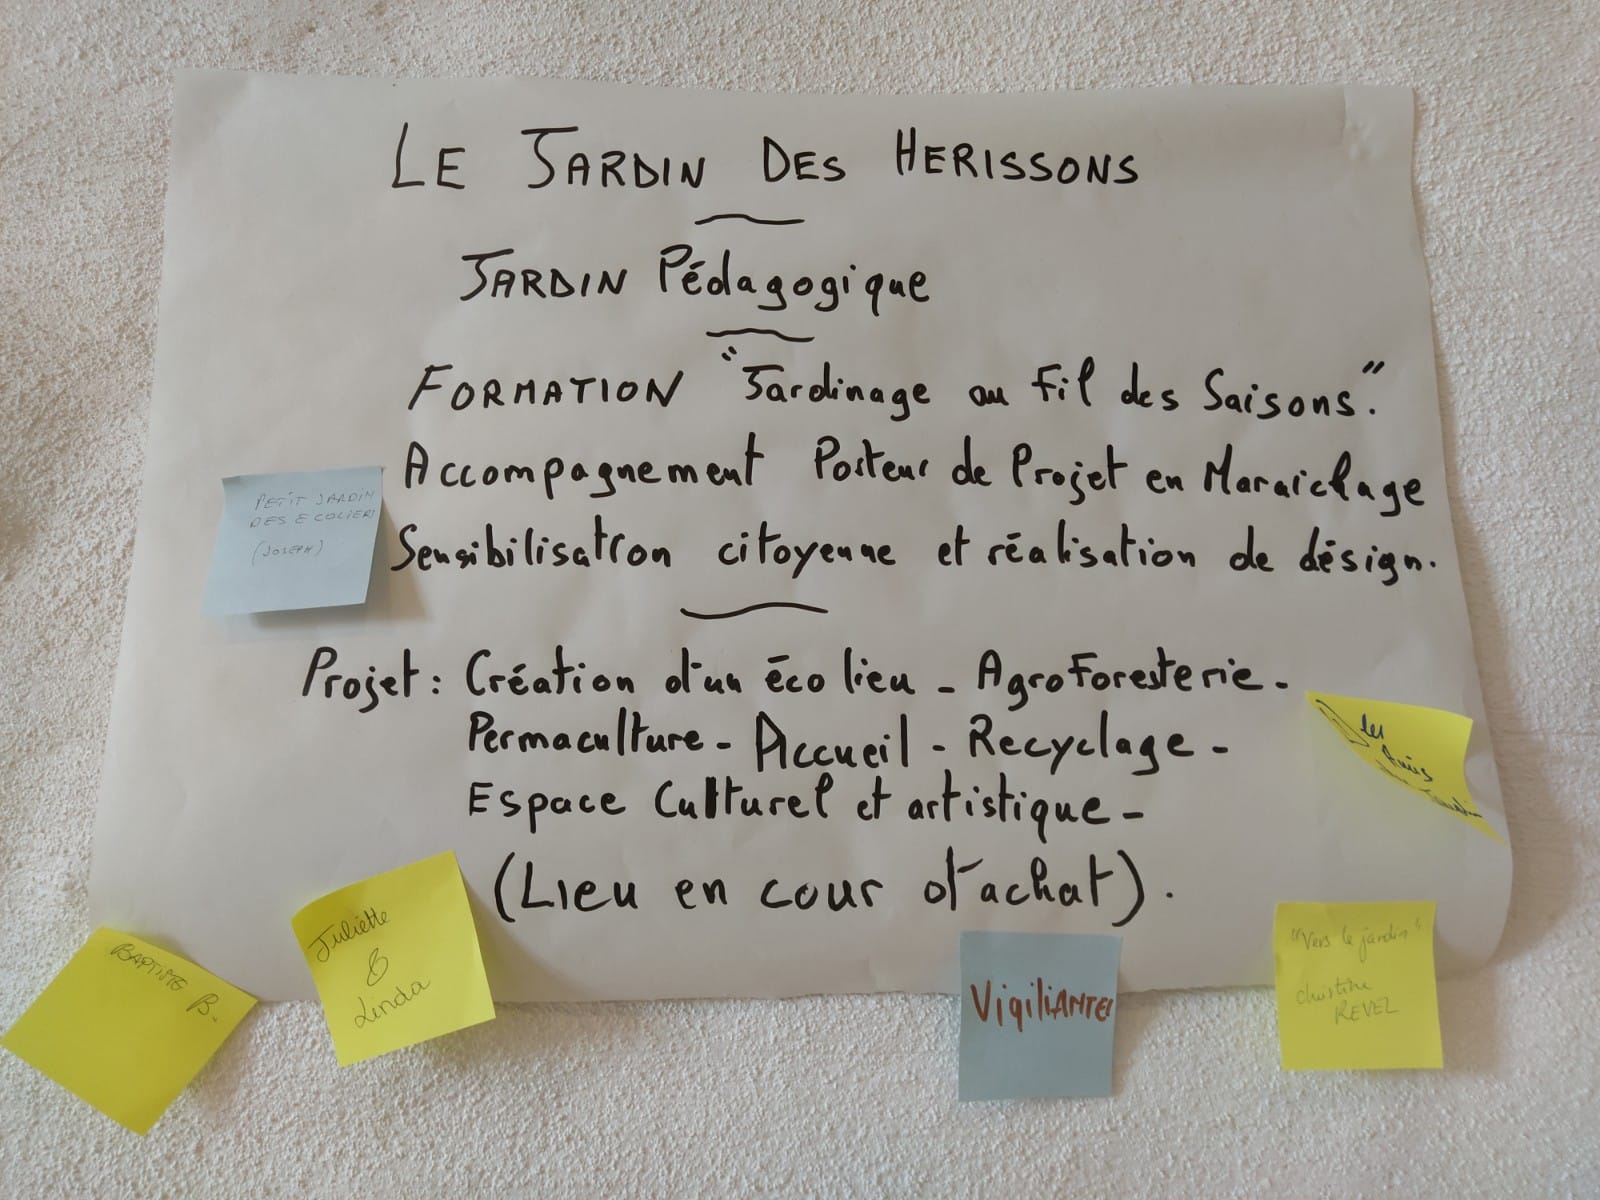 LE JARDIN DES HERISSONS
JARDIN Pédagogique
FORMATION "Jardinage au Fil des Saisons."
Accompagnement Porteur de Projet en Maraichage
Sensibilisation citoyenne et réalisation de désign.
PETIT JARDIN
DES ECOLIERS
(JOSEPH)
Projet : Création d'un éco lieu - AgroForesterie -
Permaculture - Accueil - Recyclage -
Espace Culturel et artistique -
(Lieu en cour d'achat).
Les
Amis
Jardin
BAPTISTE B.
Juliette
&
Linda
VigiliANTEs
"Vers le jardin"
christine
REVEL